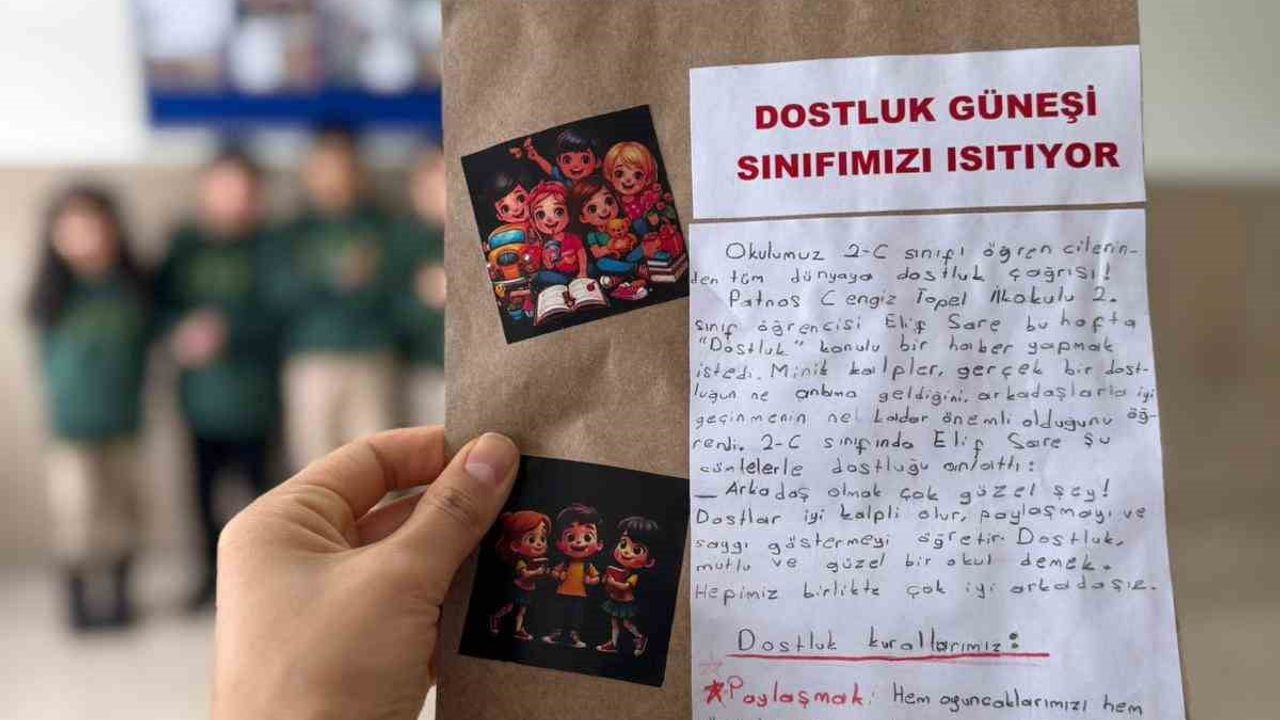 DOSTLUK GÜNEŞİ
SINIFIMIZI ISITIYOR
Okulumuz 2-C sınıfı öğrencilerin-
den tüm dünyaya dostluk çağrısı!
Patnos Cengiz Topel İlkokulu 2.
sınıf öğrencisi Elif Sare bu hafta
"Dostluk" konulu bir haber yapmak
istedi. Minik kalpler, gerçek bir dost-
luğun ne anlama geldiğini, arkadaşlarla iyi
geçinmenin ne kadar önemli olduğunu öğ-
rendi. 2-C sınıfında Elif Sare şu
cümlelerle dostluğu anlattı:
— Arkadaş olmak çok güzel şey!
Dostlar iyi kalpli olur, paylaşmayı ve
saygı göstermeyi öğretir. Dostluk,
mutlu ve güzel bir okul demek.
Hepimiz birlikte çok iyi arkadaşız.
Dostluk kurallarımız:
Paylaşmak: Hem oyuncaklarımızı hem